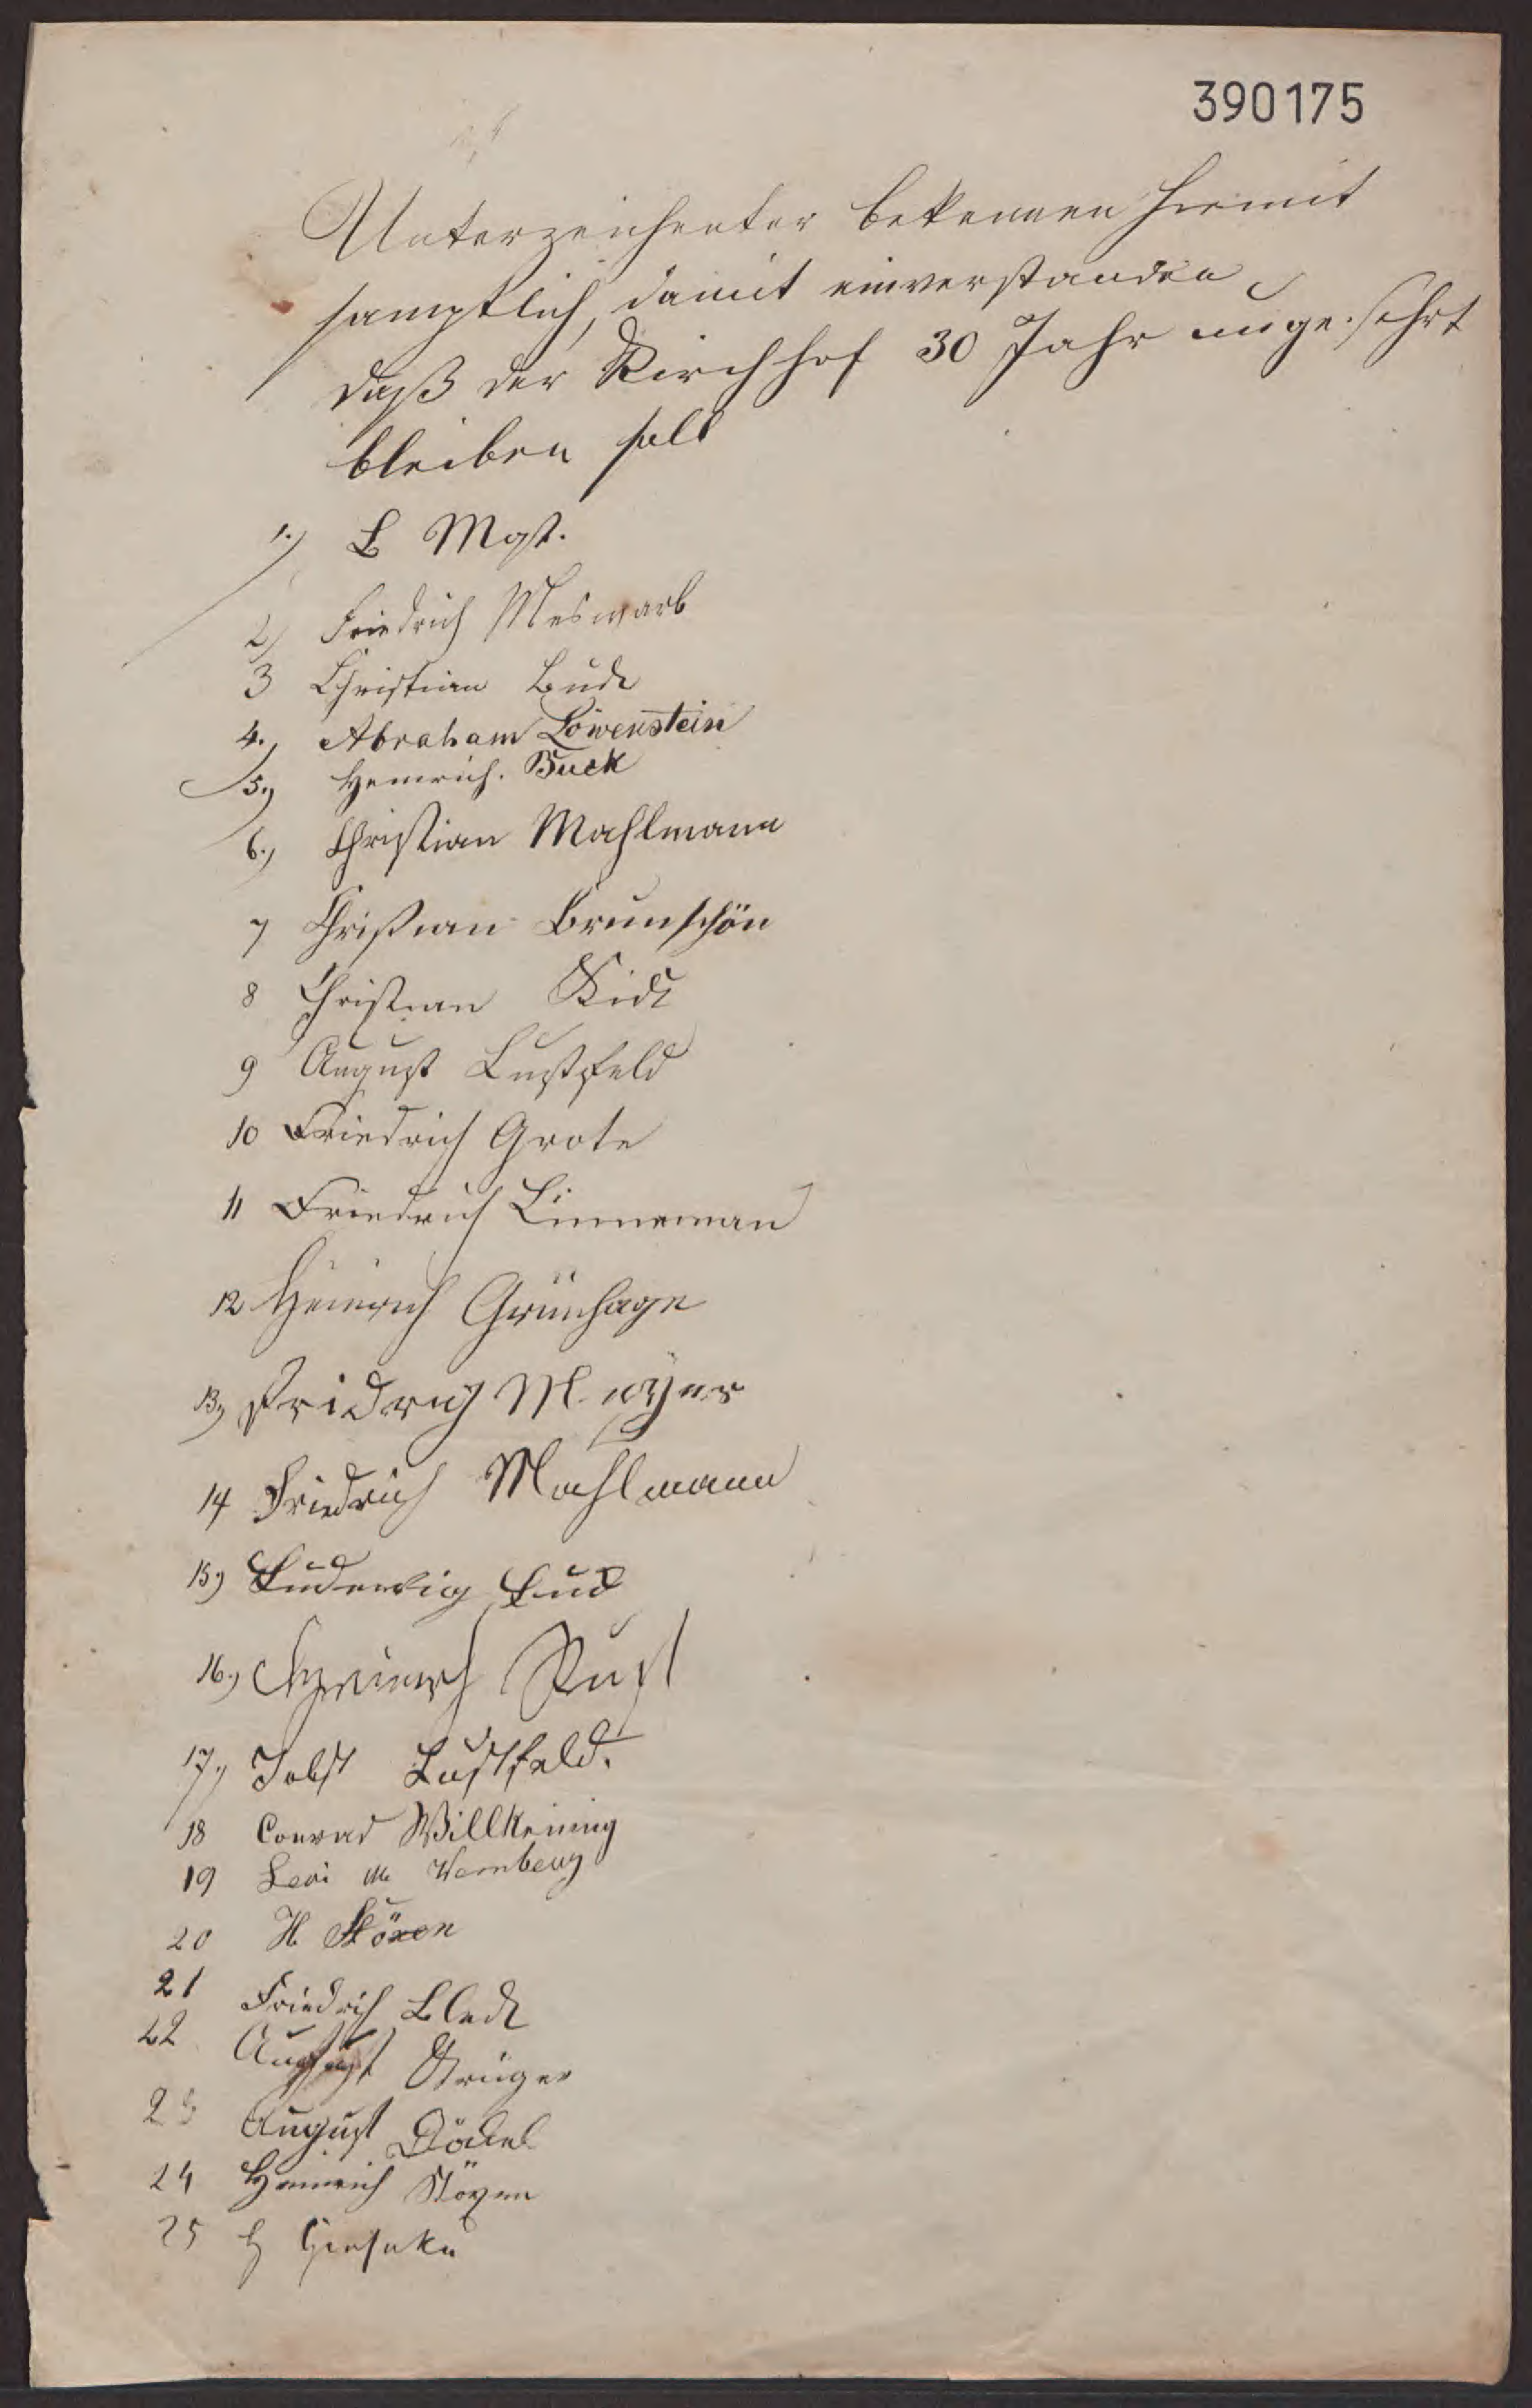 390175
Unterzeichenter bekennen hiemit
samptlich, damit einverstanden
daß der Kirchhof 30 Jahr
bleiben soll
1.)
2) Friedrich Meswarb
3 Christian Bude
4., Abraham Löwenstein
5., Heinrich. Buck
6., Christian Mahlmann
7 Christian Brunschön
8 Christian
9 August Lustfeld
10 Friedrich Grote
11 Friedrich Linneman
12 Heinrich Grünhage
13, Fridrich Meyer
14 Friedrich Mahlmann
15, Ludewig
16., Heinrich Rust
17., Jobst Lustfeld.
18 Conrad Willkening
19 Levi M
20 H Stöxen
21 Friedrich
22 August Krüger
23 August
24 Heinrich Stöxen
25 H Gieseke